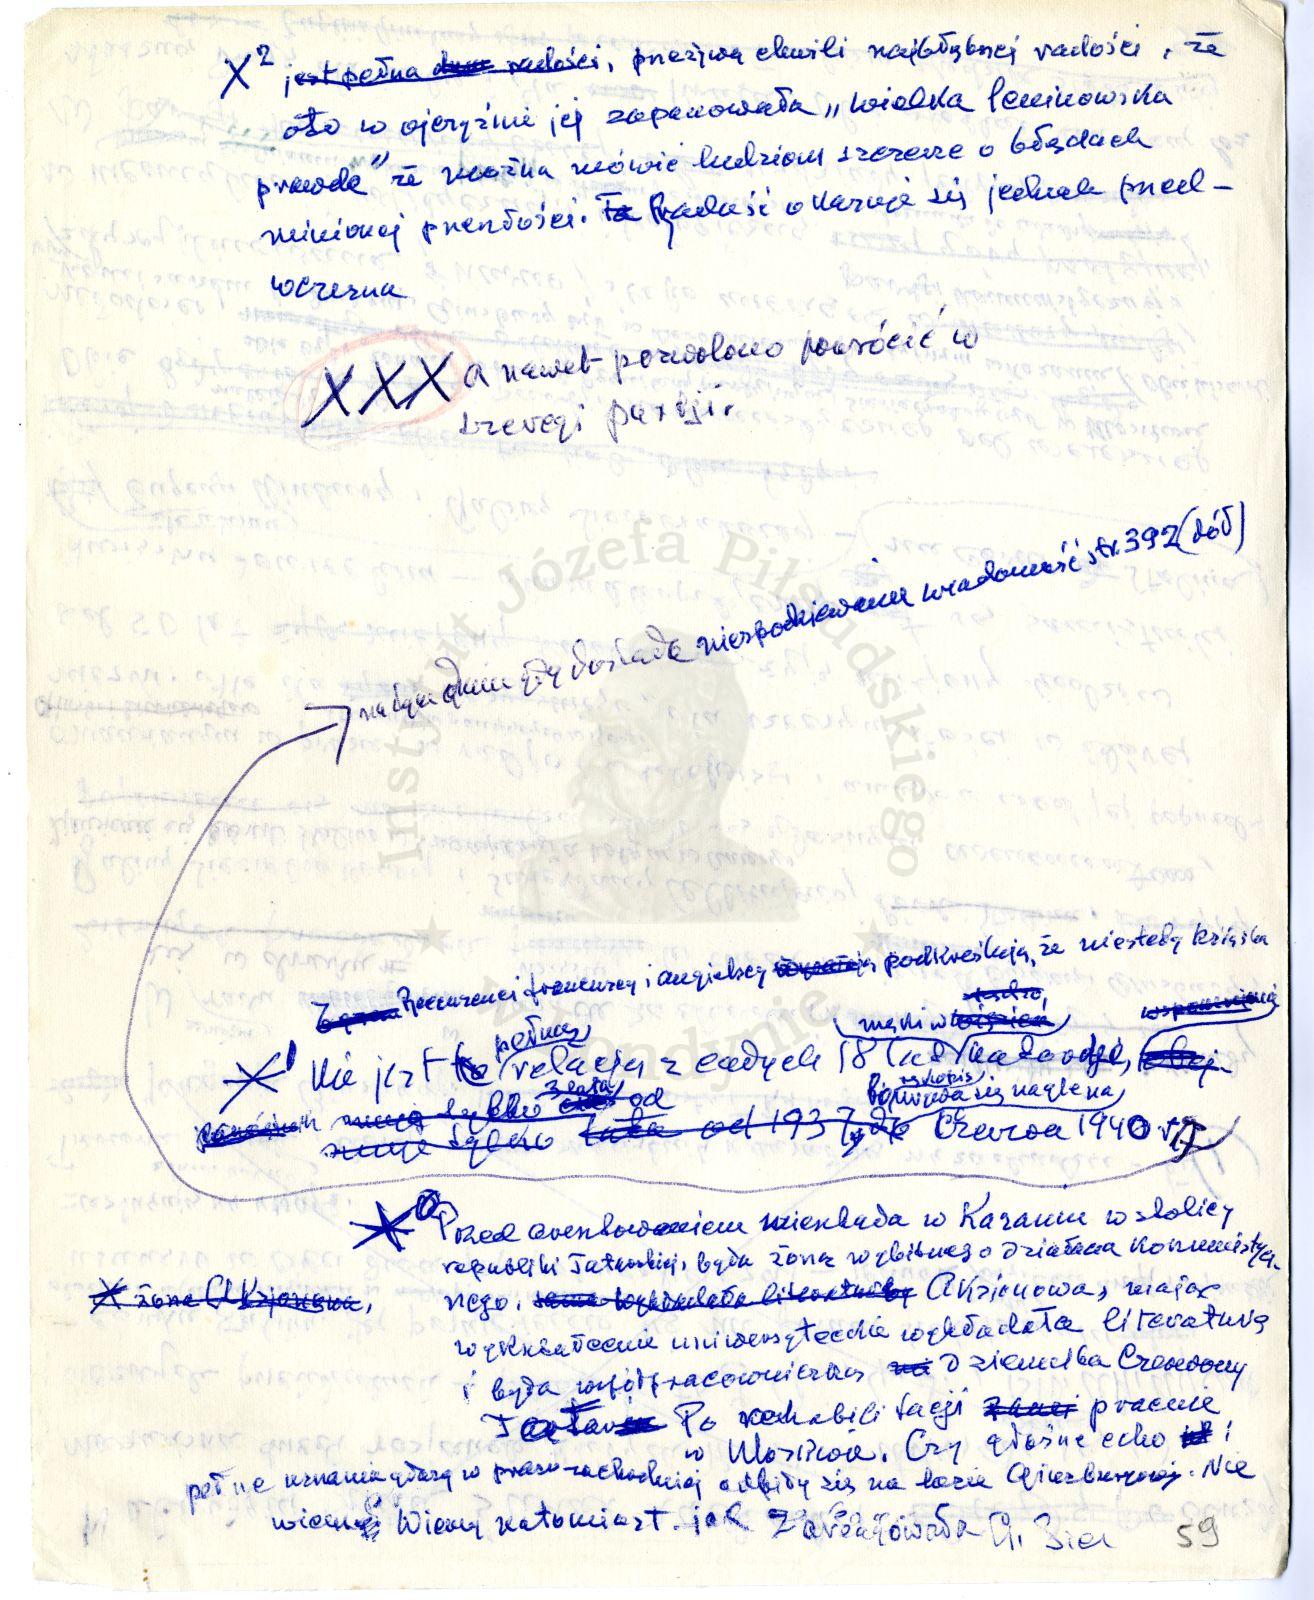 X² jest pełna radości, przeżywa chwili najgłębszej radości, że
oto w ojczyźnie jej zapanowała „wielka leninowska
prawda" że można mówić ludziom szczerze o błędach
minionej przeszłości. Ta Radość okazuje się jednak przed-
wczesna
XXX a nawet pozwolono powrócić w
szeregi partji.
gdy doszła niespodziewana wiadomość str. 392 (dół)
Recenzenci francuscy i angielscy podkreślają, że niestety książka
pełną
męki w
X¹ Nie jest to relacja z całych 18 lat
3 lata
rękopis
urywa się nagle na
muje tylko od
muje tylko lata od 1937 do Czerwca 1940 r.
X⁰ Przed aresztowaniem mieszkała w Kazaniu w stolicy
republiki Tatarskiej, była żoną wybitnego działacza komunistycz-
X żona Aksjonowa,
nego. sama wykładała literaturę Aksjonowa, mając
wykształcenie uniwersyteckie wykładała literaturę
i była współpracowniczką na Dziennika Czerwony
Po rehabilitacji pracuje
w Moskwie. Czy głośne echo i
pełne uznania głosy w prasie zachodniej odbiły się na losie Ginzburgowej. Nie
wiemy Wiemy natomiast jak zareagowała
59
Instytut Józefa Piłsudskiego
w Londynie